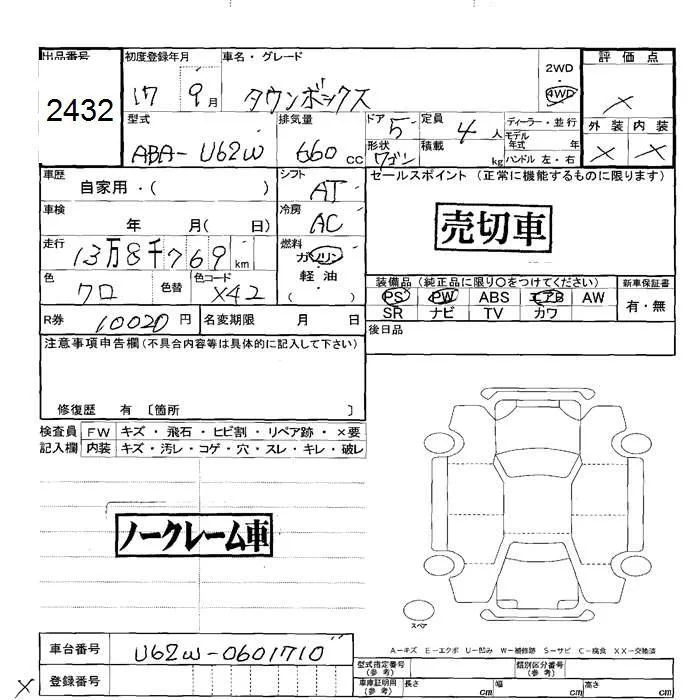 出品番号 初度登録年月 車名・グレード 2WD 評価点
2432 17 9月 タウンボックス 4WD ×
型式 排気量 ドア 定員 ディーラー・並行 外装 内装
ABA-U62W 660cc 5 4人 モデル年式 年 × ×
形状 積載 ハンドル 左・右
ワゴン kg
車歴 シフト セールスポイント(正常に機能するものに限ります)
自家用・( ) AT
車検 冷房 売切車
年 月( 日) AC
走行 燃料
13万8千769km ガソリン
軽油
( )
色 色替 色コード 装備品(純正品に限り○をつけてください) 新車保証書
クロ X42 PS PW ABS エアB AW 有・無
SR ナビ TV カワ
R券 10020円 名変期限 月 日 後日品
注意事項申告欄(不具合内容等は具体的に記入して下さい)
修復歴 有 〔箇所 〕
検査員 FW キズ・飛石・ヒビ割・リペア跡・×要
記入欄 内装 キズ・汚レ・コゲ・穴・スレ・キレ・破レ
ノークレーム車
スペア
A-キズ E-エクボ U-凹み W-補修跡 S-サビ C-腐食 XX-交換済
車台番号 U62W-0601710
型式指定番号(参考) 類別区分番号(参考)
× 登録番号 車庫証明用(参考) 長さ cm 幅 cm 高さ cm